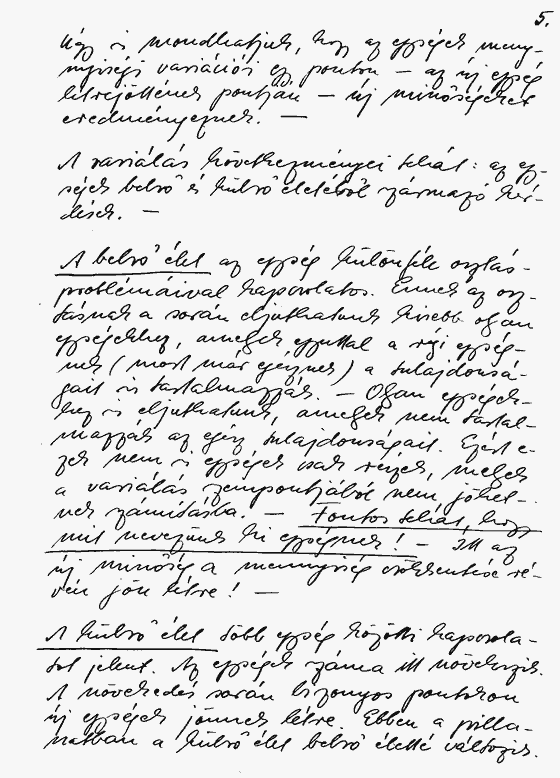 5.
Úgy is mondhatjuk, hogy az egységek meny-
nyiségi variációi egy ponton – az új egység
létrejöttének pontján – új minőségeket
eredményeznek. —
A variálás következményei tehát: az egy-
ségek belső és külső életéből származó kér-
dések. —
A belső élet az egység különféle osztás-
problémáival kapcsolatos. Ennek az osz-
tásnak a során eljuthatunk kisebb olyan
egységekhez, amelyek egyúttal a régi egység-
nek (most már egésznek) a tulajdonsá-
gait is tartalmazzák. — Olyan egységek-
hez is eljuthatunk, amelyek nem tartal-
mazzák az egész tulajdonságait. Ezért e-
zek nem is egységek csak részek, melyek
a variálás szempontjából nem jöhet-
nek számításba. — Fontos tehát, hogy
mit nevezünk ki egységnek! — Itt az
új minőség a mennyiség csökkentése ré-
vén jön létre! —
A külső élet több egység közötti kapcsola-
tot jelent. Az egységek száma itt növekszik.
A növekedés során bizonyos pontokon
új egységek jönnek létre. Ebben a pilla-
natban a külső élet belső életté változik.